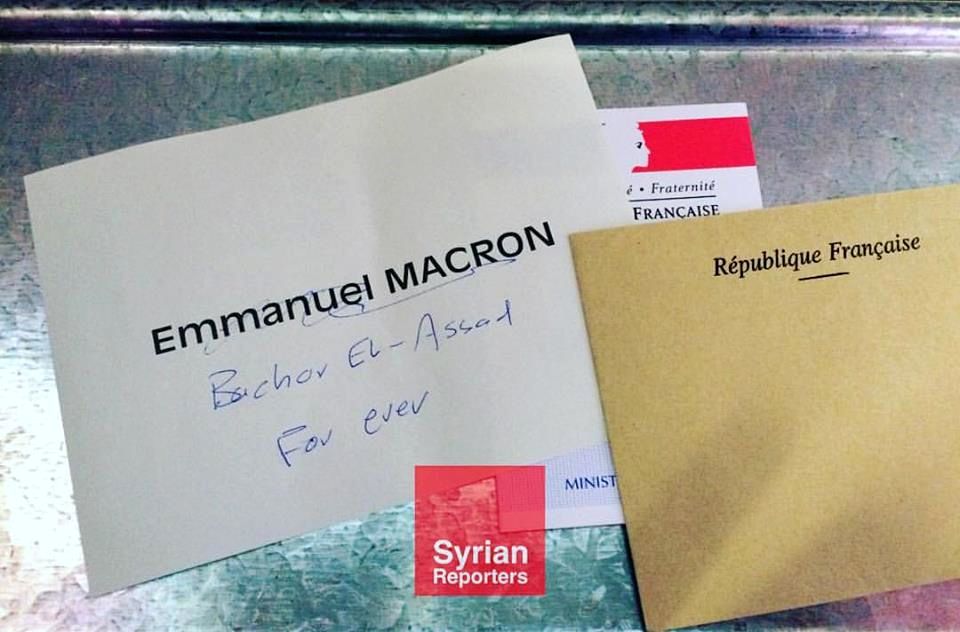 Emmanuel MACRON
Bachar El-Assad
For ever
é • Fraternité
FRANÇAISE
République Française
MINIST
Syrian
Reporters